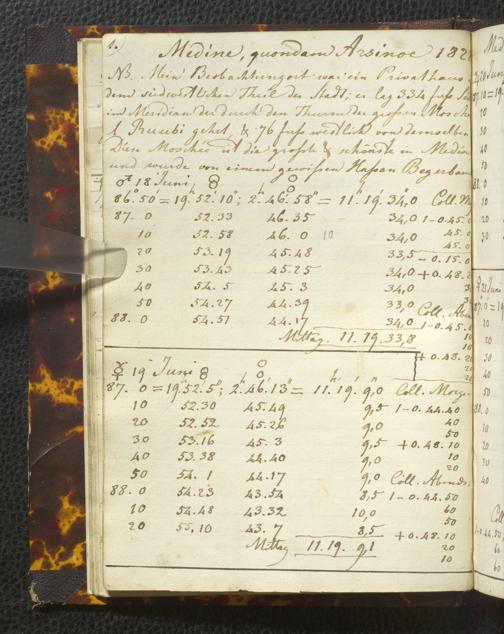 1.) Medine, quondam Arsinoe 182
NB. Mein Beobachtungsort war ein Privathaus
dem südwestlichen Theil der Stadt; er lag 334 fuss
im Meridian der durch den Thurm der grossen Mosch
gehet, & 76 fuss westlich von demselben
Diese Moschee ist die grösste & schönste in Medin
und wurde von einem gewissen Hassan
♂ 18 Juni
86.50 = 19.52.10"; 2.46.58" = 11.19.34,0 Coll. M
87. 0 52.33 46.35 34,0 1-0.45.
10 52.58 46.0 10 34,0 45.0
20 53.19 45.48 33,5 -0.15.0
30 53.43 45.25 34,0 +0.48.
40 54.5 45.3 34,0
50 54.27 44.39 33,0 Coll. Ab
88. 0 54.51 44.17 34,0 1-0.45.
Mittag. 11.19.33,8
+0.48.20
☿ 19 Juni
87. 0 = 19.52.5"; 2.46.13" = 11.19.9,0 Coll. Morg.
10 52.30 45.49 9,5 1-0.44.40
20 52.52 45.26 9,0 40
50
30 53.16 45.3 9,5 +0.48.10
40 53.38 44.40 9,0 10
20
50 54.1 44.17 9,0 Coll. Abends.
88. 0 54.23 43.54 8,5 1-0.44.50
10 54.48 43.32 10,0 60
50
20 55.10 43.7 8,5 +0.48.10
Mittag 11.19.9,1 20
10